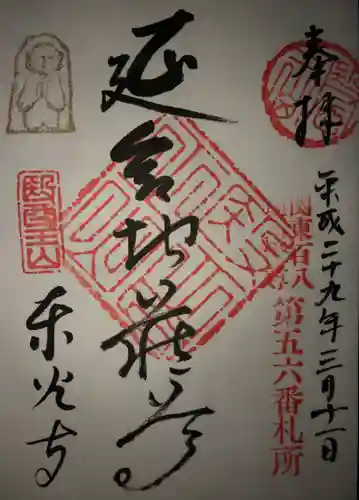 奉拝
平成二十九年三月十一日
関東百八
第五六番札所
延命地蔵尊
醫王山
東光寺